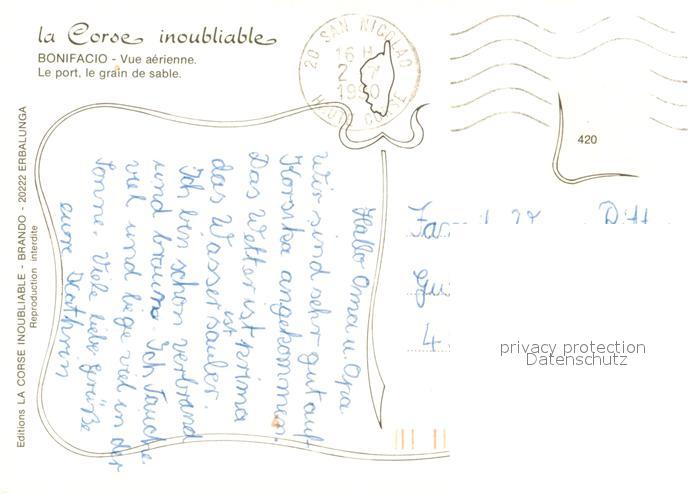 la Corse inoubliable
BONIFACIO - Vue aérienne.
Le port, le grain de sable.
20 SAN NICOLAO
16 H
2 - 7
1990
HTE CORSE
420
Editions LA CORSE INOUBLIABLE - BRANDO - 20222 ERBALUNGA
Reproduction interdite
Hallo Oma u. Opa
Wir sind sehr gut auf
Korsika angekommen.
Das Wetter ist prima
das Wasser ist sauber.
Ich bin schon verbrand
und braun. Ich tauche
viel und liege viel in der
Sonne. Viele liebe Grüße
eure Kathrin
4
privacy protection
Datenschutz